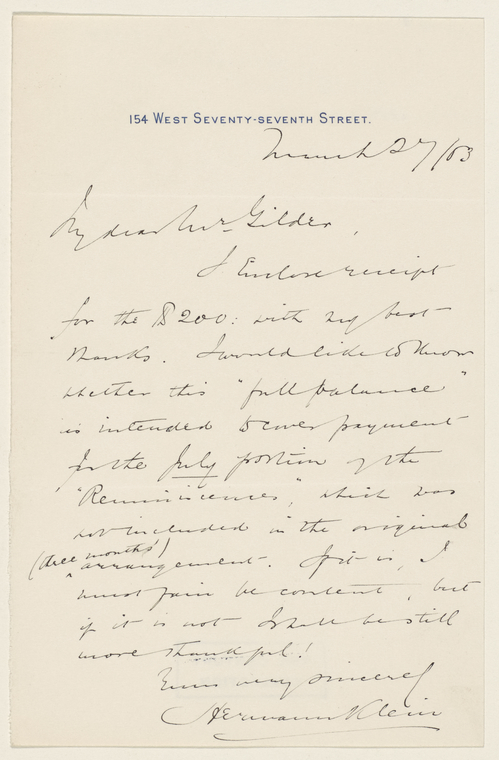 154 West Seventy-seventh Street.
March 27/03
My dear Mr. Gilder,
I Enclose receipt
for the $200: with my best
thanks. I would like to know
whether this "full balance"
is intended to cover payment
for the July portion of the
"Reminiscences", which was
not included in the original
(three months')
arrangement. If it is, I
must fain be content, but
if it is not I shall be still
more thankful!
Yours very sincerely
Hermann Klein